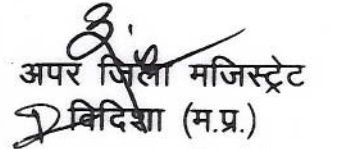 अपर जिला मजिस्ट्रेट
विदिशा (म.प्र.)